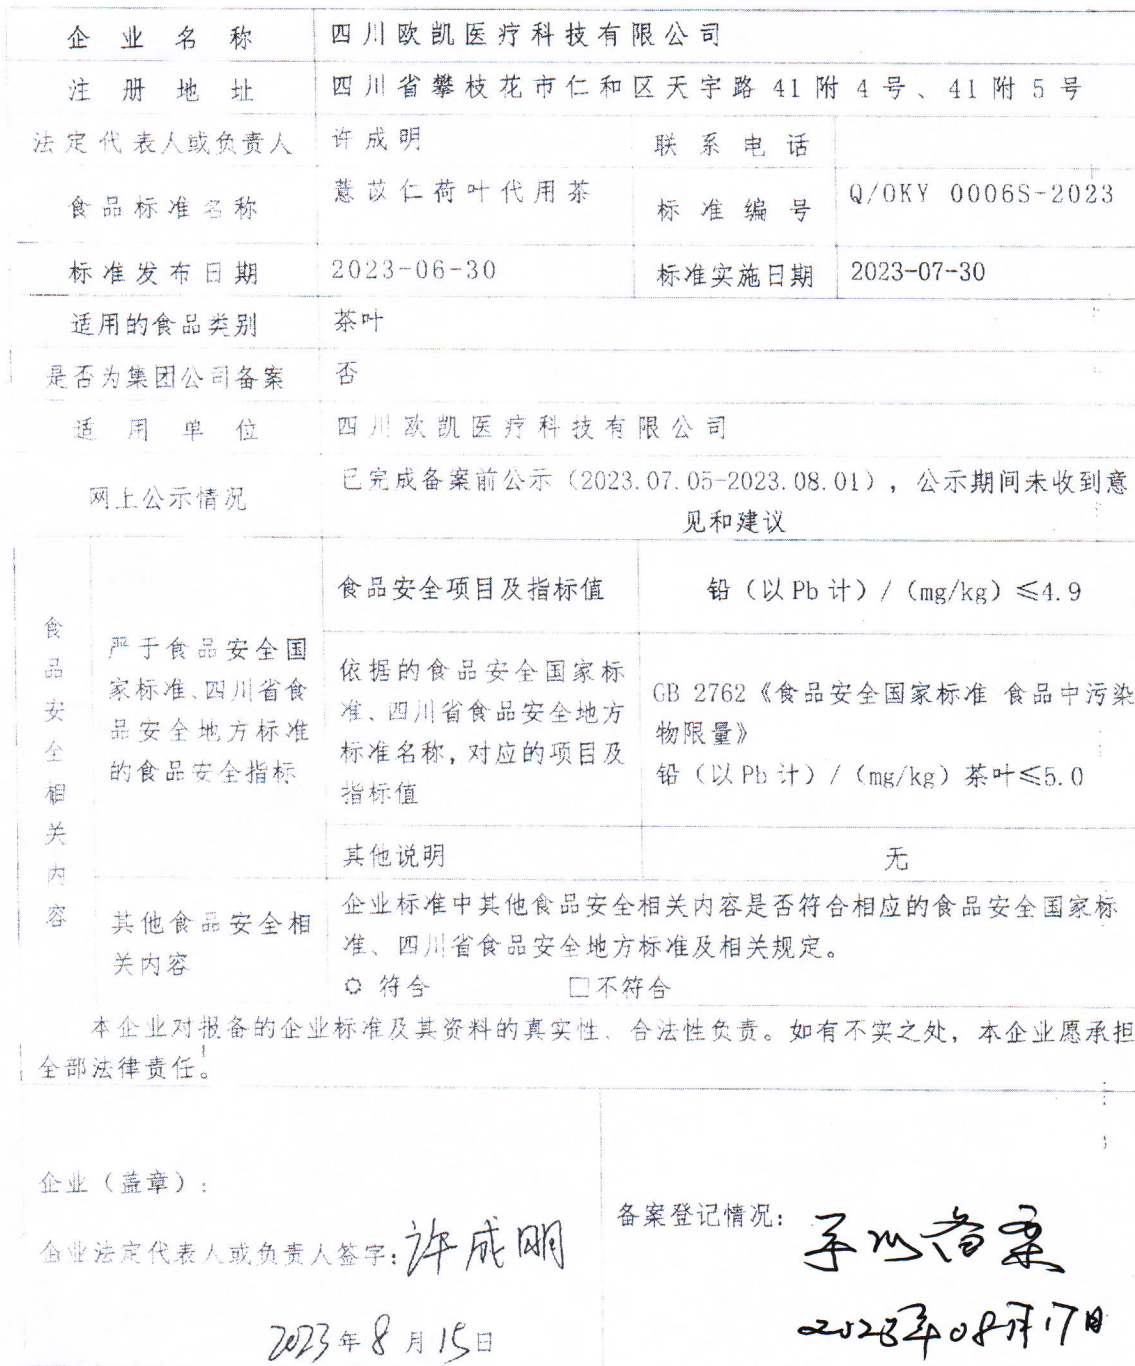 企业名称 四川欧凯医疗科技有限公司
注册地址 四川省攀枝花市仁和区天宇路 41 附 4 号、41 附 5 号
法定代表人或负责人 许成明 联系电话
食品标准名称 薏苡仁荷叶代用茶 标准编号 Q/OKY 0006S-2023
标准发布日期 2023-06-30 标准实施日期 2023-07-30
适用的食品类别 茶叶
是否为集团公司备案 否
适用单位 四川欧凯医疗科技有限公司
网上公示情况 已完成备案前公示（2023.07.05-2023.08.01），公示期间未收到意
见和建议
食品安全相关内容
严于食品安全国
家标准、四川省食
品安全地方标准
的食品安全指标
食品安全项目及指标值 铅（以 Pb 计）/（mg/kg）≤4.9
依据的食品安全国家标
准、四川省食品安全地方
标准名称，对应的项目及
指标值
GB 2762《食品安全国家标准 食品中污染
物限量》
铅（以 Pb 计）/（mg/kg）茶叶≤5.0
其他说明 无
其他食品安全相
关内容
企业标准中其他食品安全相关内容是否符合相应的食品安全国家标
准、四川省食品安全地方标准及相关规定。
符合 □不符合
本企业对报备的企业标准及其资料的真实性、合法性负责。如有不实之处，本企业愿承担
全部法律责任。
企业（盖章）：
企业法定代表人或负责人签字：许成明
2023年8月15日
备案登记情况：予以备案
2023年08月17日